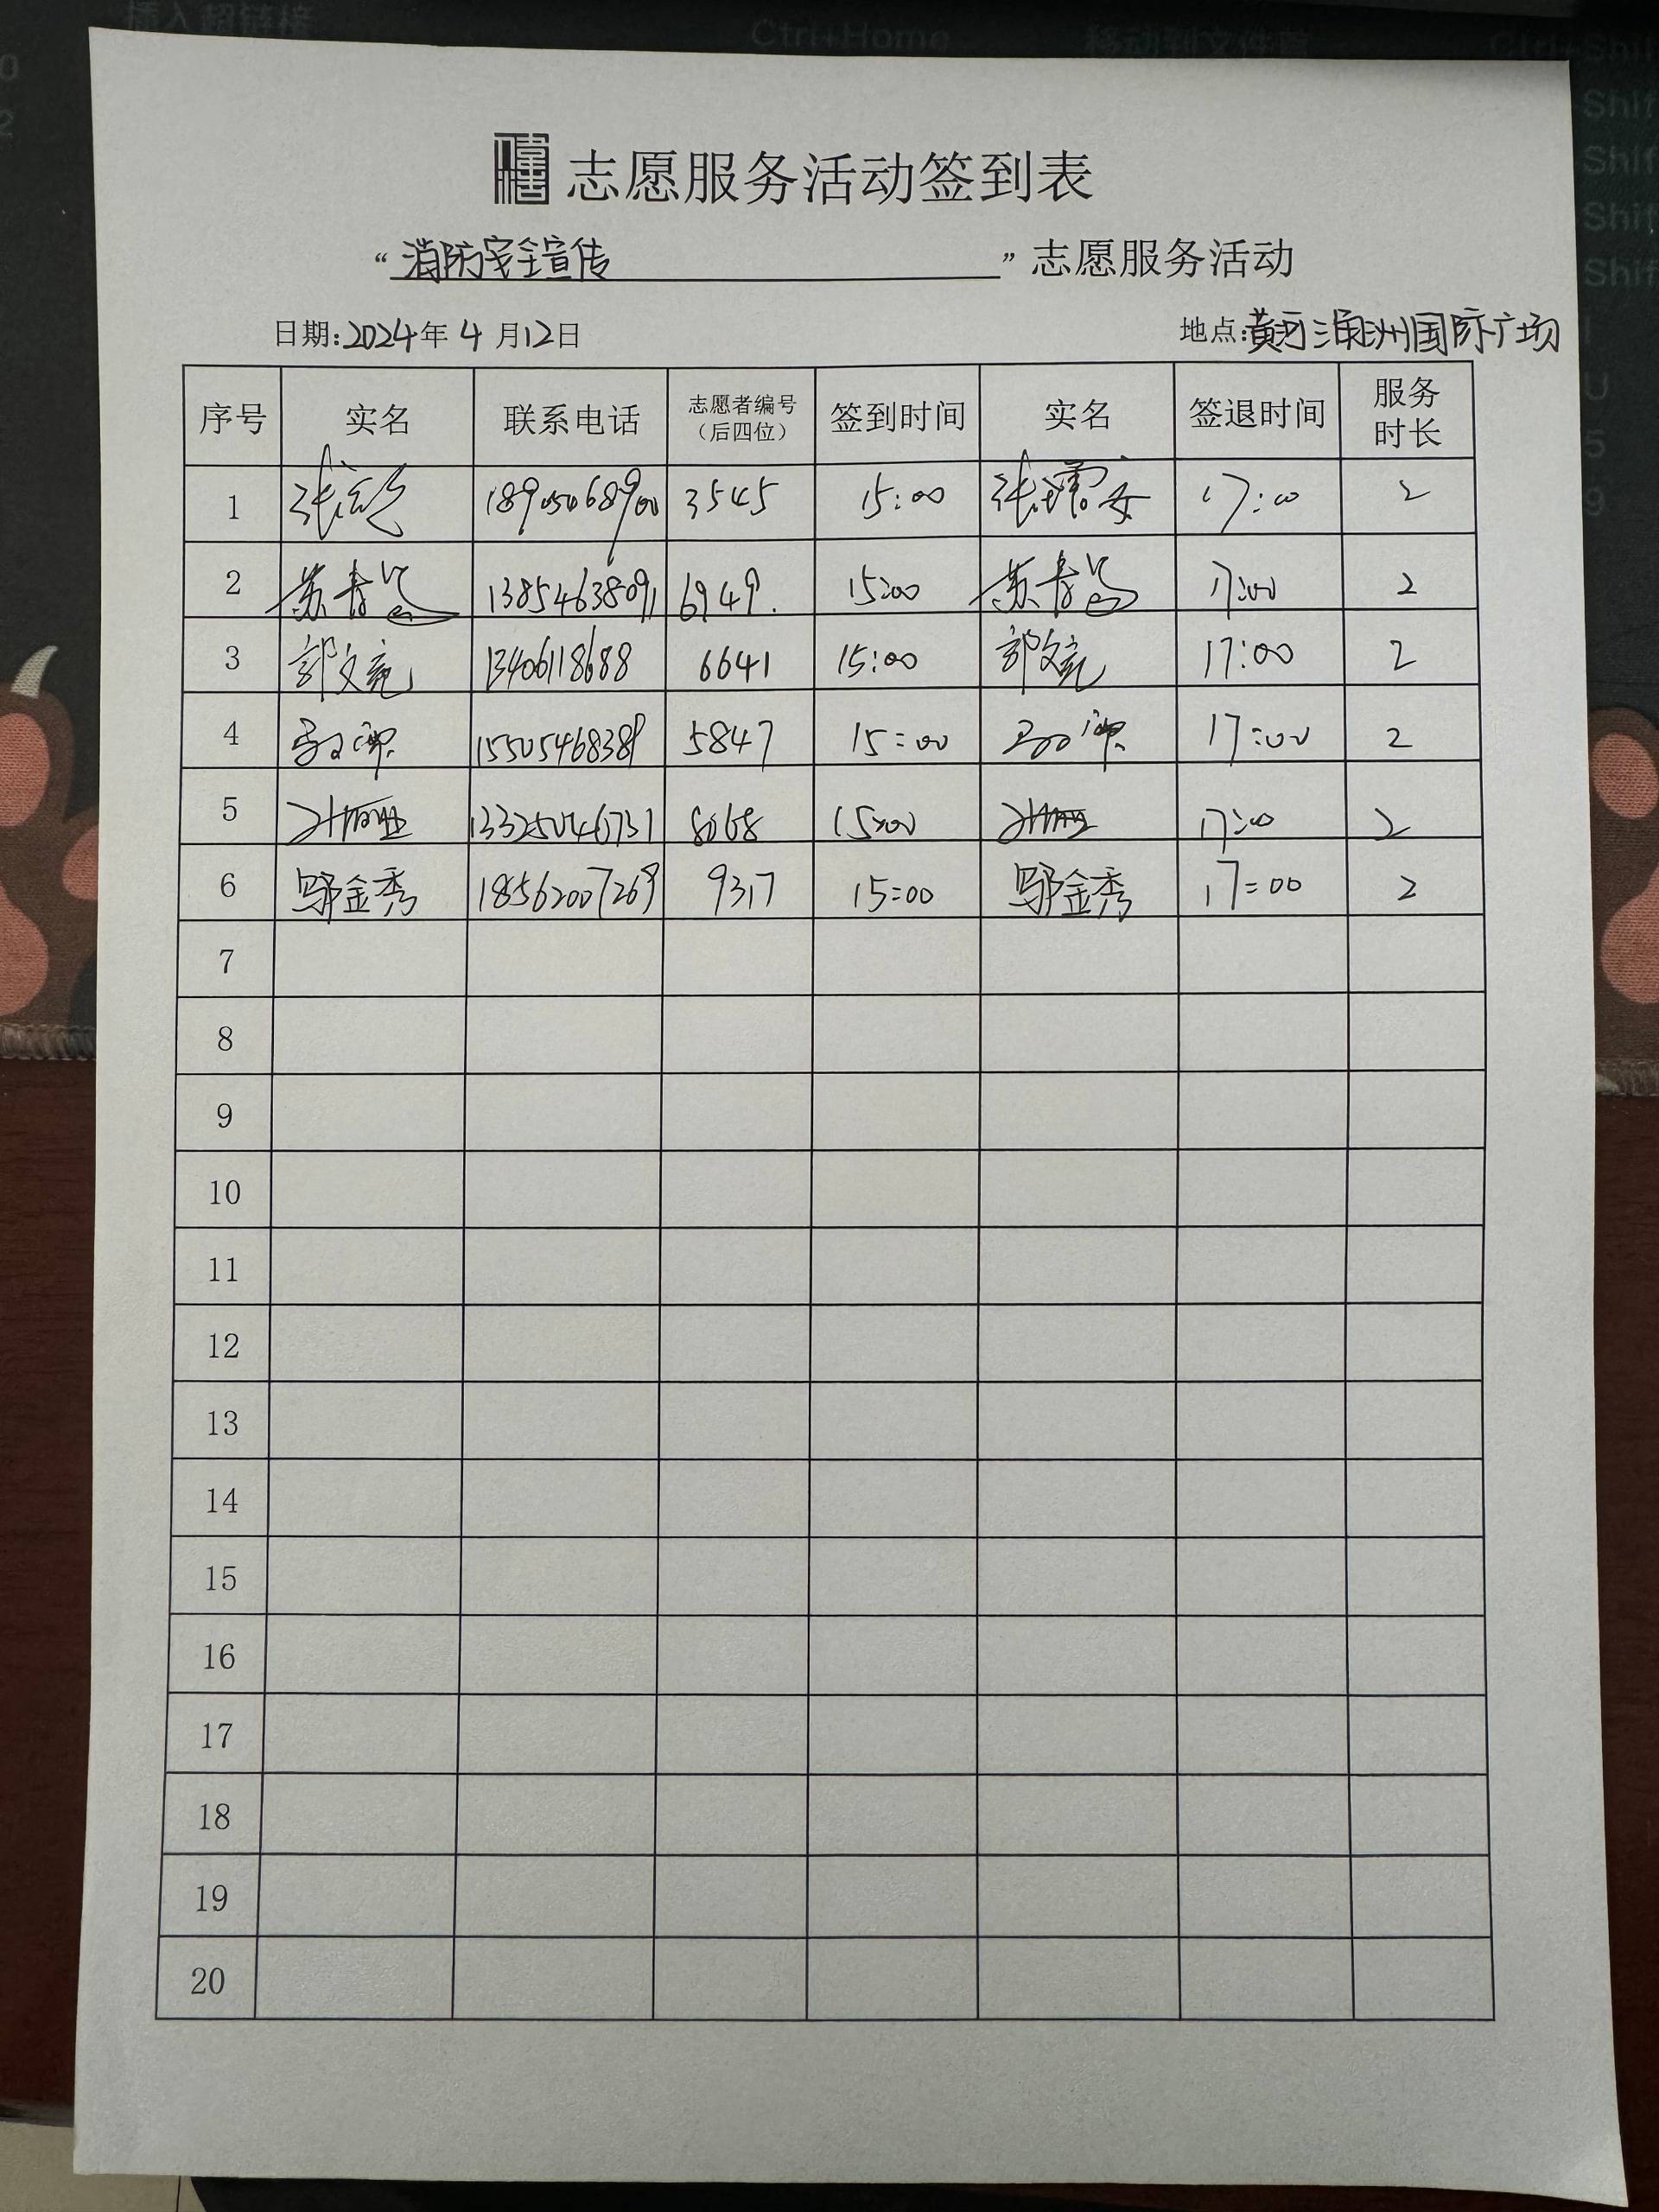 插入超链接 Ctrl+Home
志愿服务活动签到表
“消防安全宣传”志愿服务活动
日期:2024年 4 月12日 地点:黄河三角洲国际广场
序号 实名 联系电话 志愿者编号（后四位） 签到时间 实名 签退时间 服务时长
1 18905068900 3545 15:00 17:00 2
2 13854638091 6949. 15:00 17:00 2
3 郭文亮 13406118688 6641 15:00 郭文亮 17:00 2
4 15505468389 5847 15:00 17:00 2
5 13325046731 8068 15:00 17:00 2
6 邬金秀 18562007269 9317 15:00 邬金秀 17:00 2
7
8
9
10
11
12
13
14
15
16
17
18
19
20